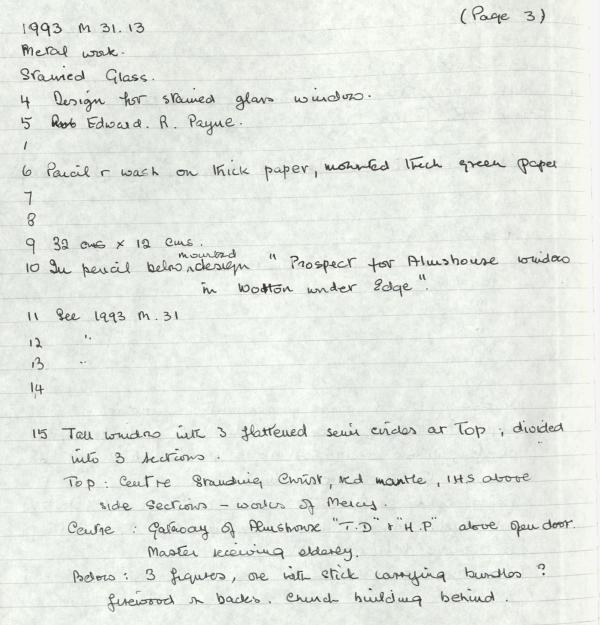 (Page 3)
1993 M 31.13
Metal work.
Stained Glass.
4 Design for stained glass window.
5 Edward. R. Payne.
1
6 Pencil & wash on thick paper, mounted thick green paper
7
8
9 32 cms x 12 cms.
10 In pencil below mounted design " Prospect for Almshouse window
in Wotton under Edge".
11 See 1993 M.31
12 "
13 "
14
15 Tall window with 3 flattened semi circles at Top, divided
into 3 sections.
Top: Centre Standing Christ, red mantle, IHS above
side Sections - works of Mercy.
Centre : Gateway of Almshouse "T.D" & "H.P" above open door.
Master receiving elderly.
Below: 3 figures, one with stick carrying bundles ?
firewood on backs. Church building behind.